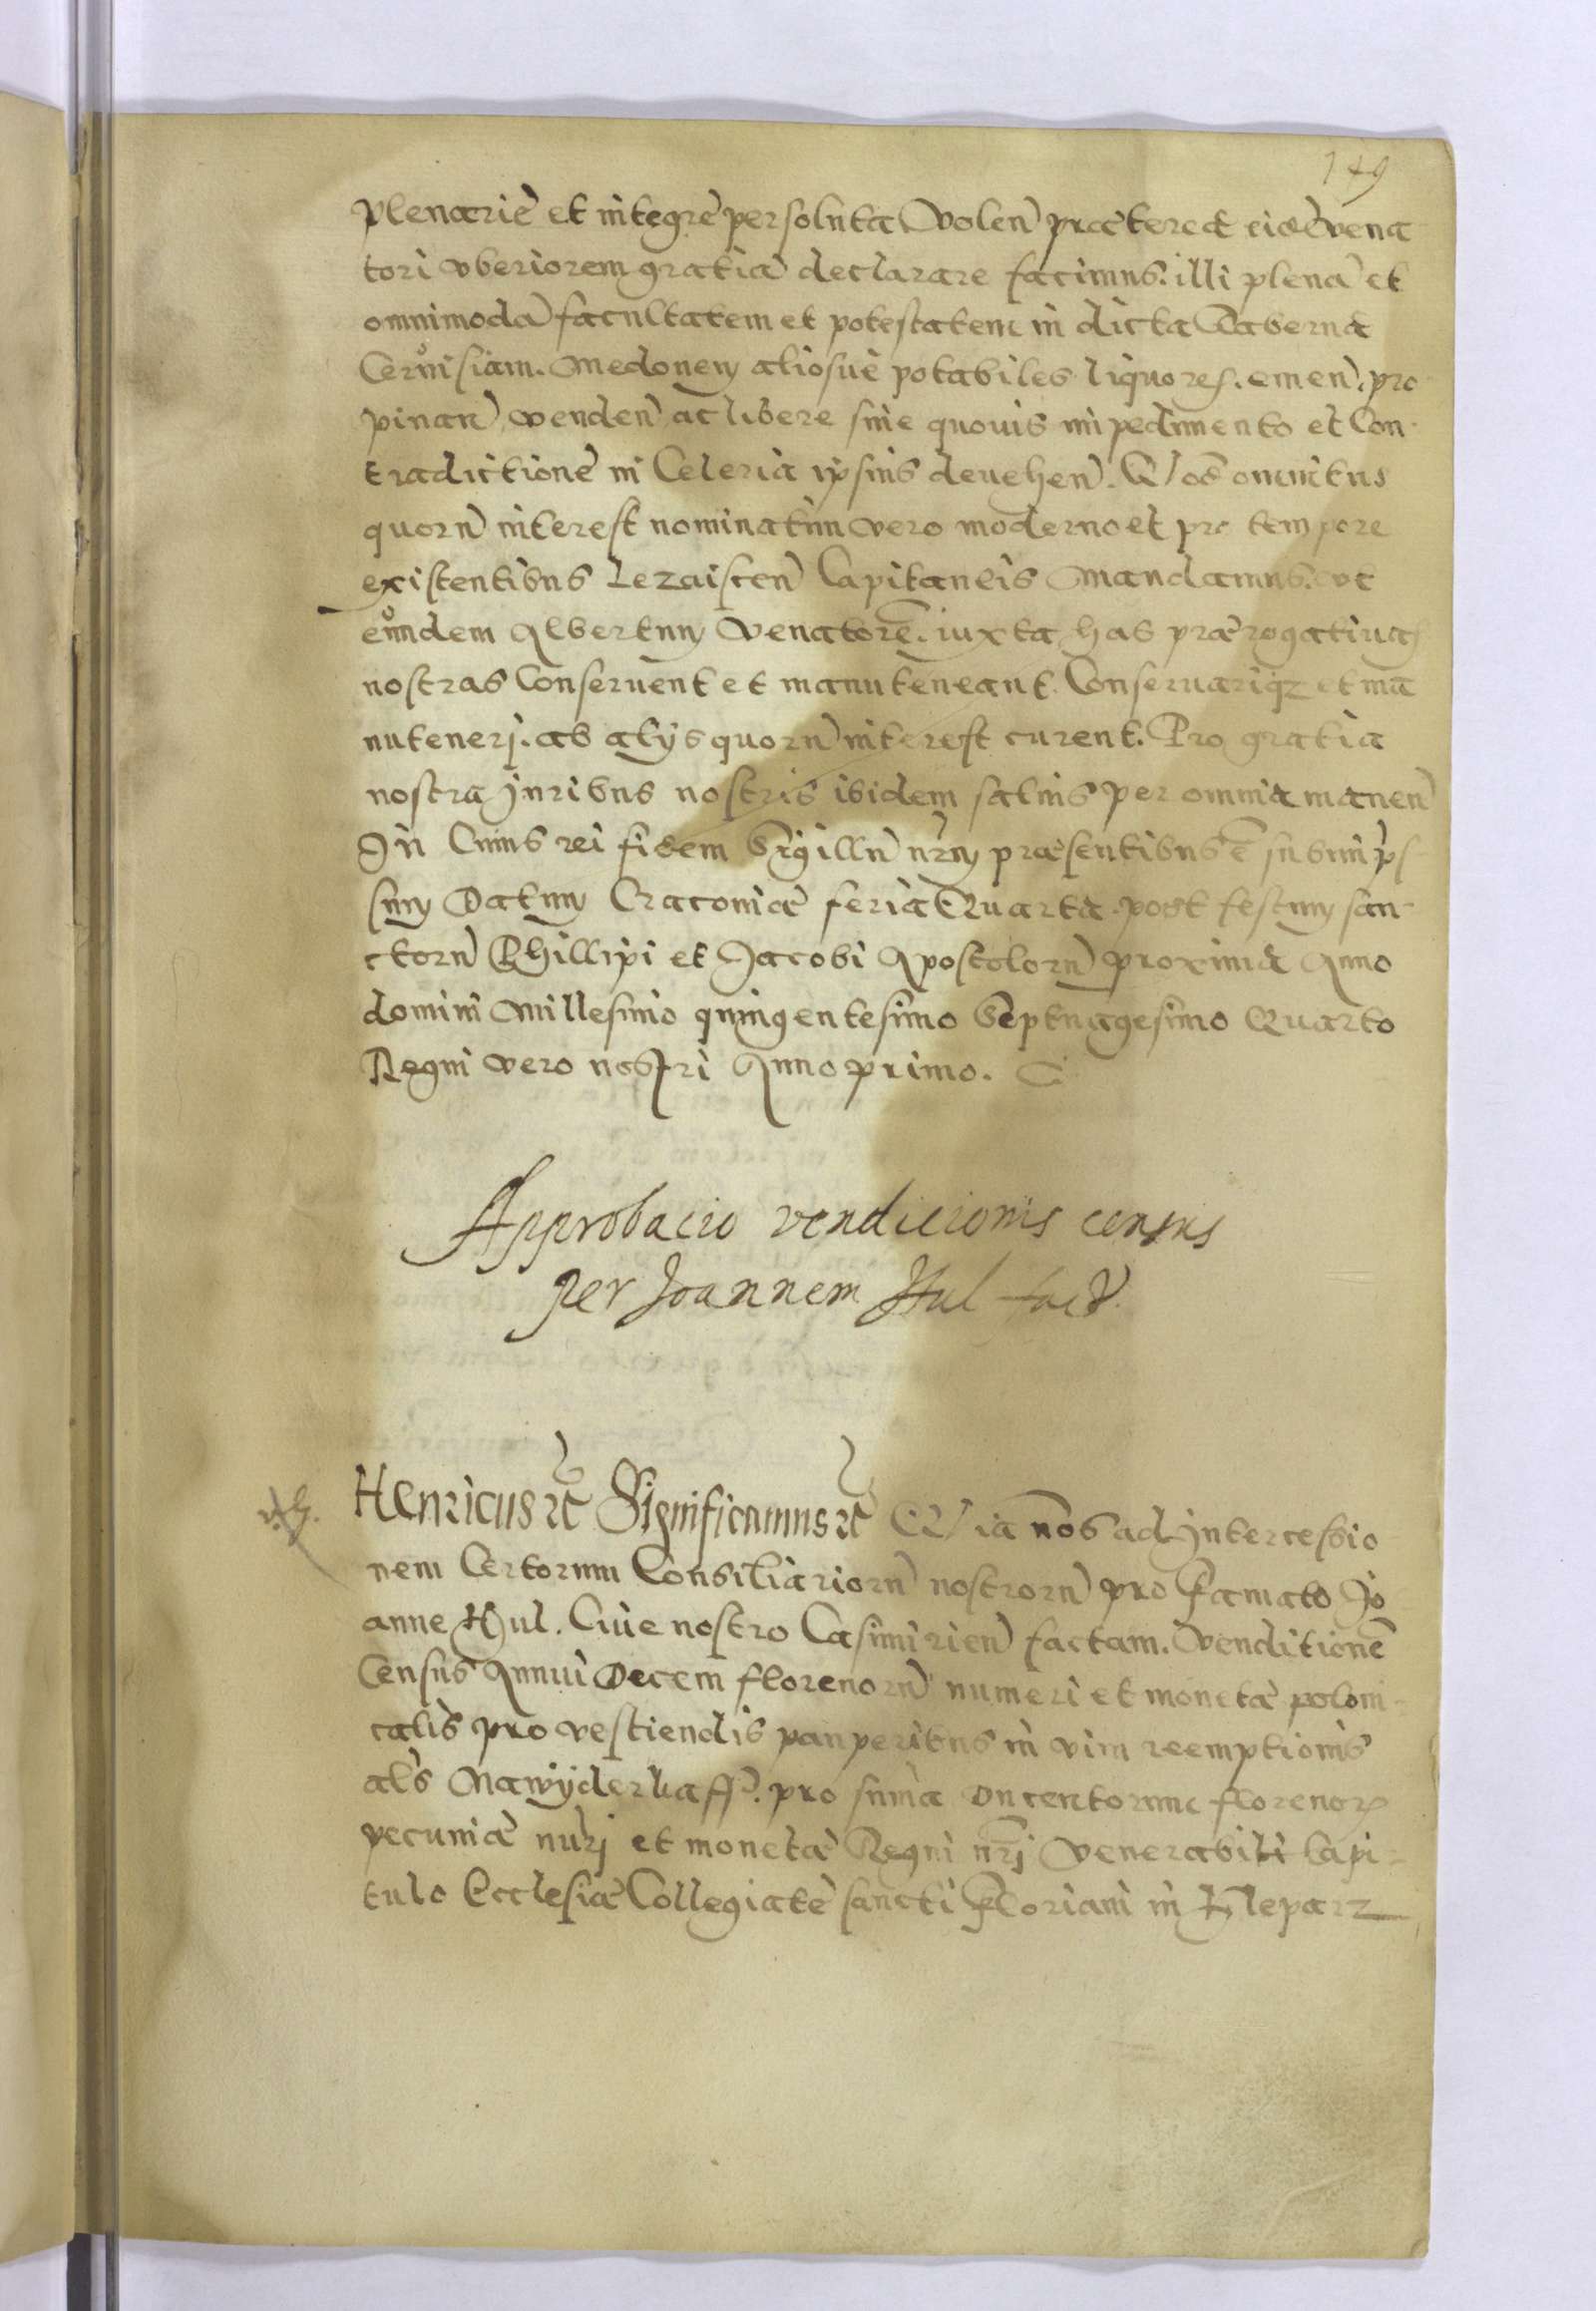 149
plenariè et integrè persoluta Volen̄ prætereà eidē vena
tori vberiorem gratiā declarare facimus. illi plenā et
omnimodā facultatem et potestatem in dicta Taberna
Ceruisiam. Medonem aliosuè potabiles liquores. emen̄. pro
pinan̄ venden̄ ac libere sine quouis impedimento et Con
tradictionè in Celeria ipsius deuehen̄. Q/ od omnibus
quorū interest nominatim vero moderno et pro tempore
existentibus Lezaiscen̄ Capitaneis Mandamus. vt
eundem Albertum Venatorē. iuxta has prærogatiuas
nostras Conseruent et manuteneant. Conseruariqz et ma
nutenerj. ab alijs quorū interest curent. Pro gratia
nostra Juribus nostris ibidem saluis per omnia manen̄
In Cuius rei fidem Sigillū nr̄m præsentibus ē subimp̄s
sum Datum Cracouiæ feria Quarta post festum san
ctorū Phillipi et Jacobi Apostolorū proxima Anno
domini Millesimo quingentesimo Septuagesimo Quarto
Regni vero nostri Anno primo.
Approbacio vendicionis census
per Joannem Hul fact.
Henricus etc Significamus etc Q/ ia nos ad Intercessio
nem Certorum Consiliariorū nostrorū pro famato Jo
anne Hul. Ciue nostro Casimirien̄ factam. Venditionē
Census Annui Decem florenorū numeri et monetæ poloni
calis pro vestiendis pauperibus in vim reemptionis
als Nawyderkaff. pro suma Ducentorum florenorz
pecuniæ nurj et monetæ Regni nr̄j Venerabili Capi
tulo Ecclesiæ Collegiatè sancti floriani in Kleparz